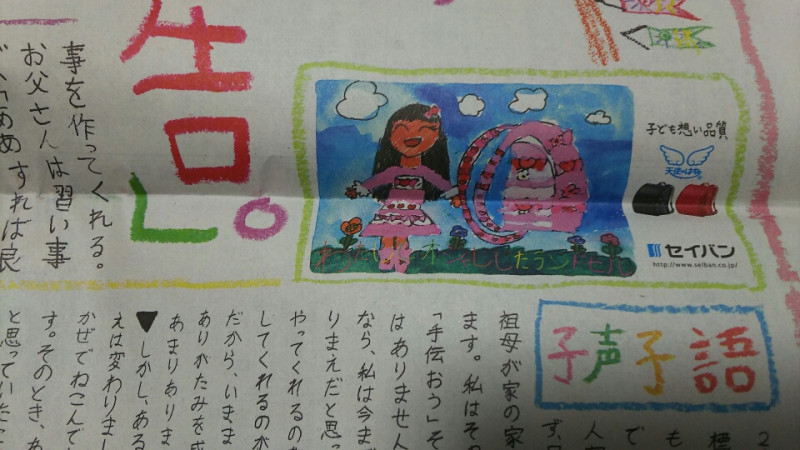 告し。
事を作ってくれる。
お父さんは習い事
すれば良
子ども想い品質
天使のはね
セイバン
http://www.seiban.co.jp/
ランドセル
子声子語
標
も
で
人
ず、
祖母が家の家
ます。私はその
「手伝おう」そ
はありません
なら、私は今まで
りまえだと思っ
やってくれるの
してくれるのが
だから、いまま
ありがたみを感
あまりありま
▼しかし、ある
えは変わりまし
かぜでねこんで
す。そのとき、あ
と思っていたこ